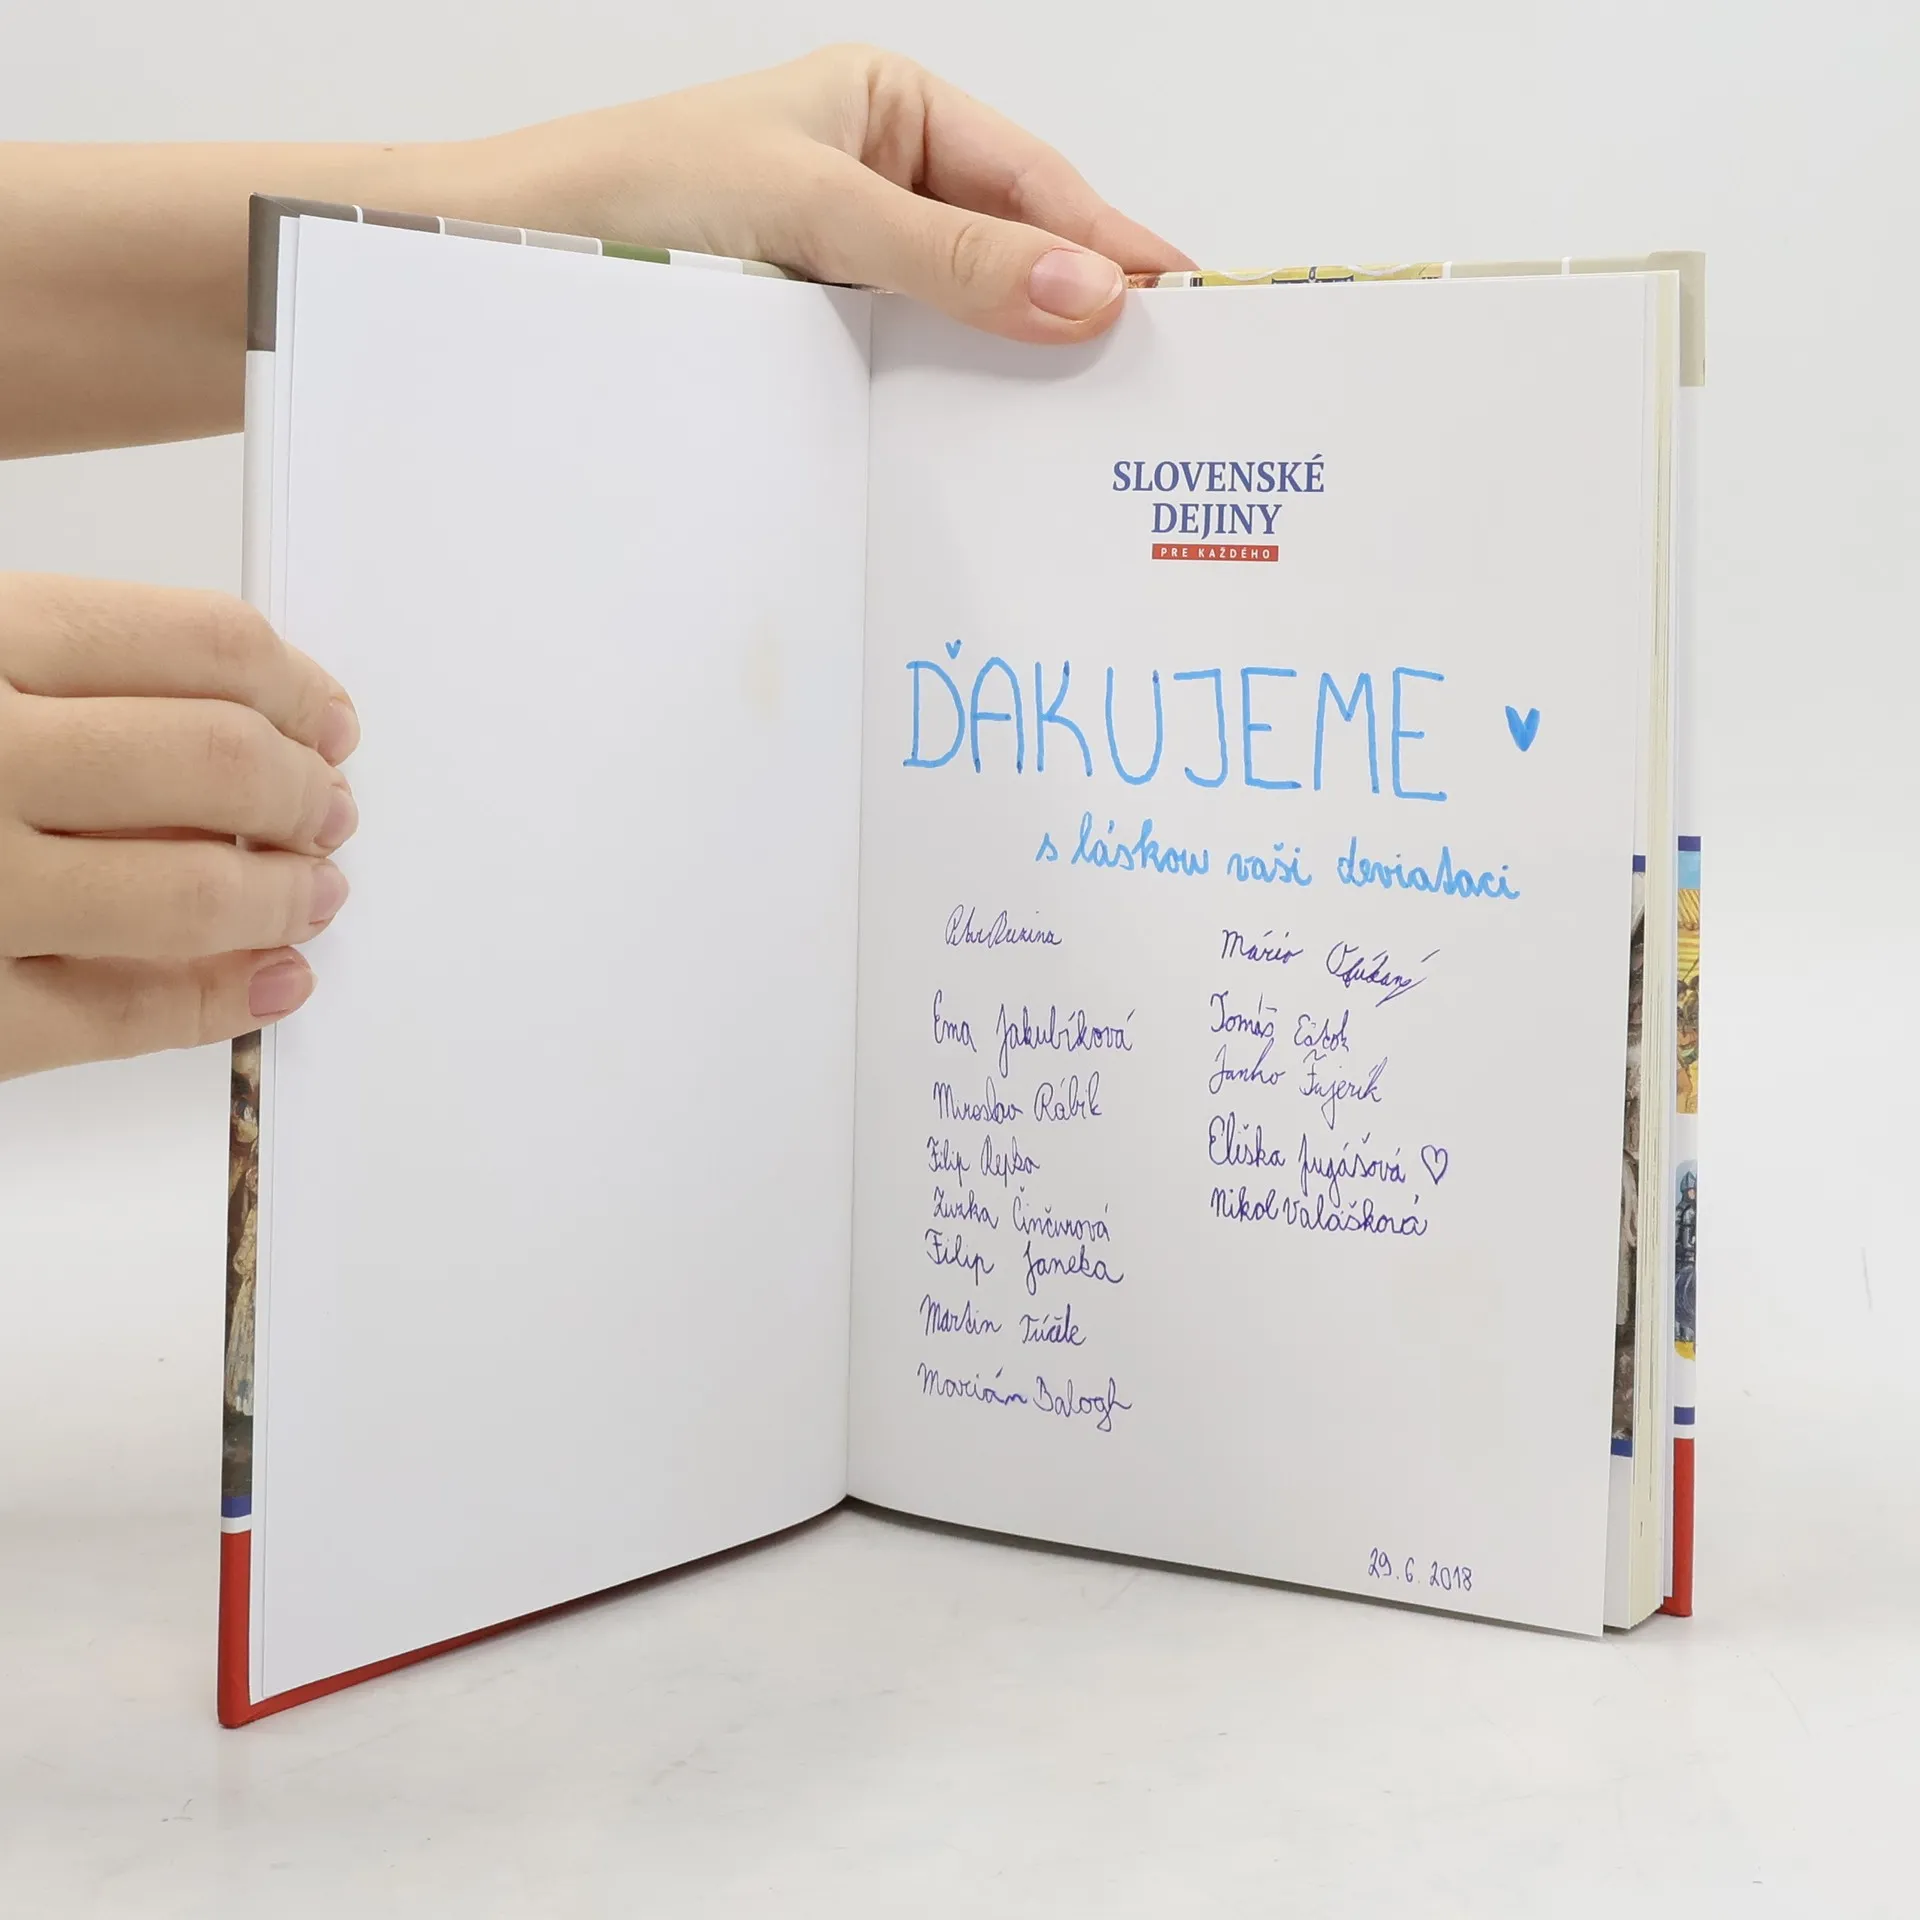 SLOVENSKÉ
DEJINY
PRE KAŽDÉHO
ĎAKUJEME
s láskou vaši deviataci
Ema Jakubíková
Miroslav Rábik
Filip Repka
Zuzka Činčurová
Filip Janeka
Martin
Marián Balogh
Mário
Tomáš
Janko Fujerík
Eliška Jugášová ♡
Nikol Valášková
29.6.2018